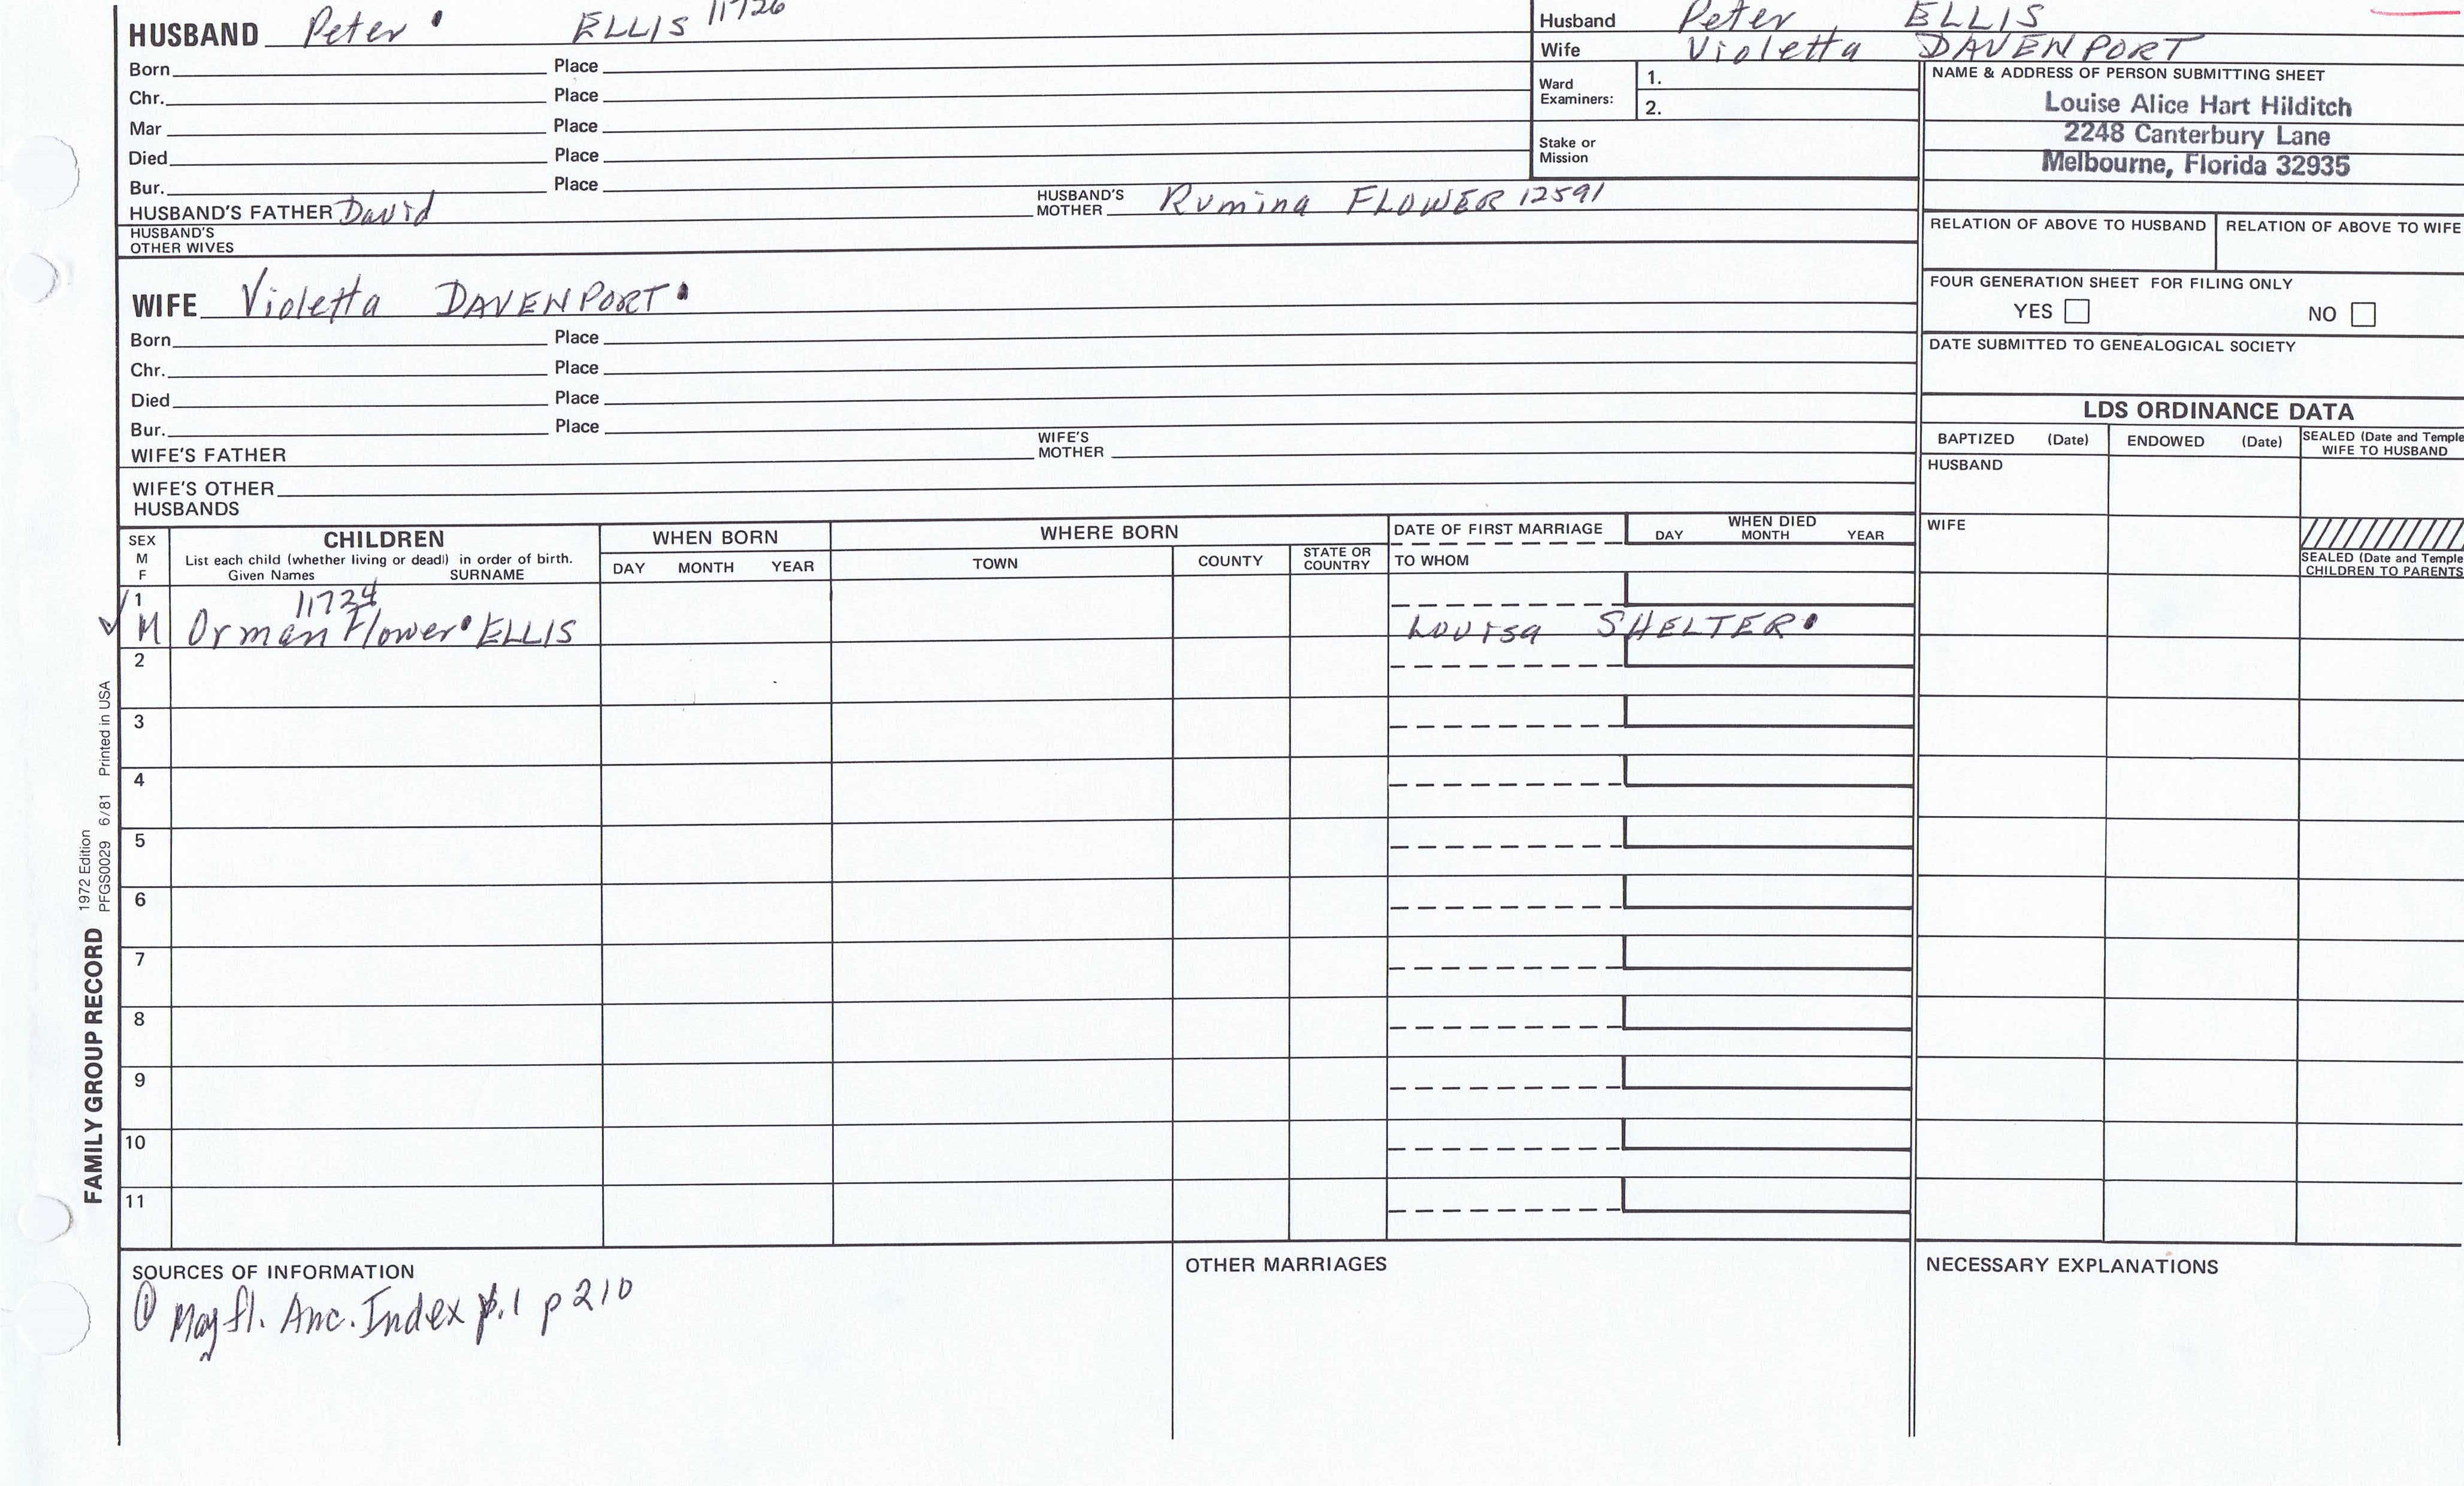 HUSBAND Peter ELLIS 11726
Born Place
Chr. Place
Mar Place
Died Place
Bur. Place
HUSBAND'S FATHER David HUSBAND'S MOTHER Rumina FLOWER 12591
HUSBAND'S OTHER WIVES
Husband Peter ELLIS
Wife Violetta DAVENPORT
Ward Examiners: 1.
2.
Stake or Mission
NAME & ADDRESS OF PERSON SUBMITTING SHEET
Louise Alice Hart Hilditch
2248 Canterbury Lane
Melbourne, Florida 32935
RELATION OF ABOVE TO HUSBAND RELATION OF ABOVE TO WIFE
FOUR GENERATION SHEET FOR FILING ONLY
YES NO
DATE SUBMITTED TO GENEALOGICAL SOCIETY
WIFE Violetta DAVENPORT
Born Place
Chr. Place
Died Place
Bur. Place
WIFE'S FATHER WIFE'S MOTHER
WIFE'S OTHER HUSBANDS
LDS ORDINANCE DATA
BAPTIZED (Date) ENDOWED (Date) SEALED (Date and Temple WIFE TO HUSBAND
HUSBAND
WIFE
SEALED (Date and Temple
CHILDREN TO PARENTS
SEX M F
CHILDREN
List each child (whether living or dead) in order of birth.
Given Names SURNAME
WHEN BORN
DAY MONTH YEAR
WHERE BORN
TOWN COUNTY STATE OR COUNTRY
DATE OF FIRST MARRIAGE
TO WHOM
WHEN DIED
DAY MONTH YEAR
1 11724
M Orman Flower ELLIS Louisa SHELTER
2
3
4
5
6
7
8
9
10
11
SOURCES OF INFORMATION
① Mayfl. Anc. Index p.1 p 210
OTHER MARRIAGES
NECESSARY EXPLANATIONS
FAMILY GROUP RECORD
1972 Edition
PFGS0029 6/81 Printed in USA